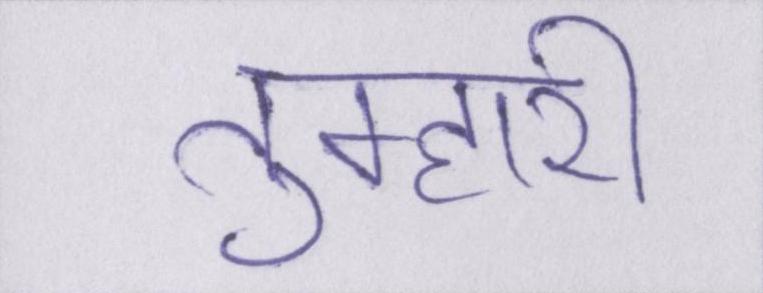 तुम्हारी